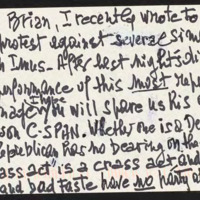 Brian, I recently wrote to
protest against several sim
n Imus. After last night's di
performance of this most repr
made I hope you will spare us his
on C-SPAN. Whether one is a De
epublican has no bearing on the
ass act" is a crass act and
and bad taste have no party a